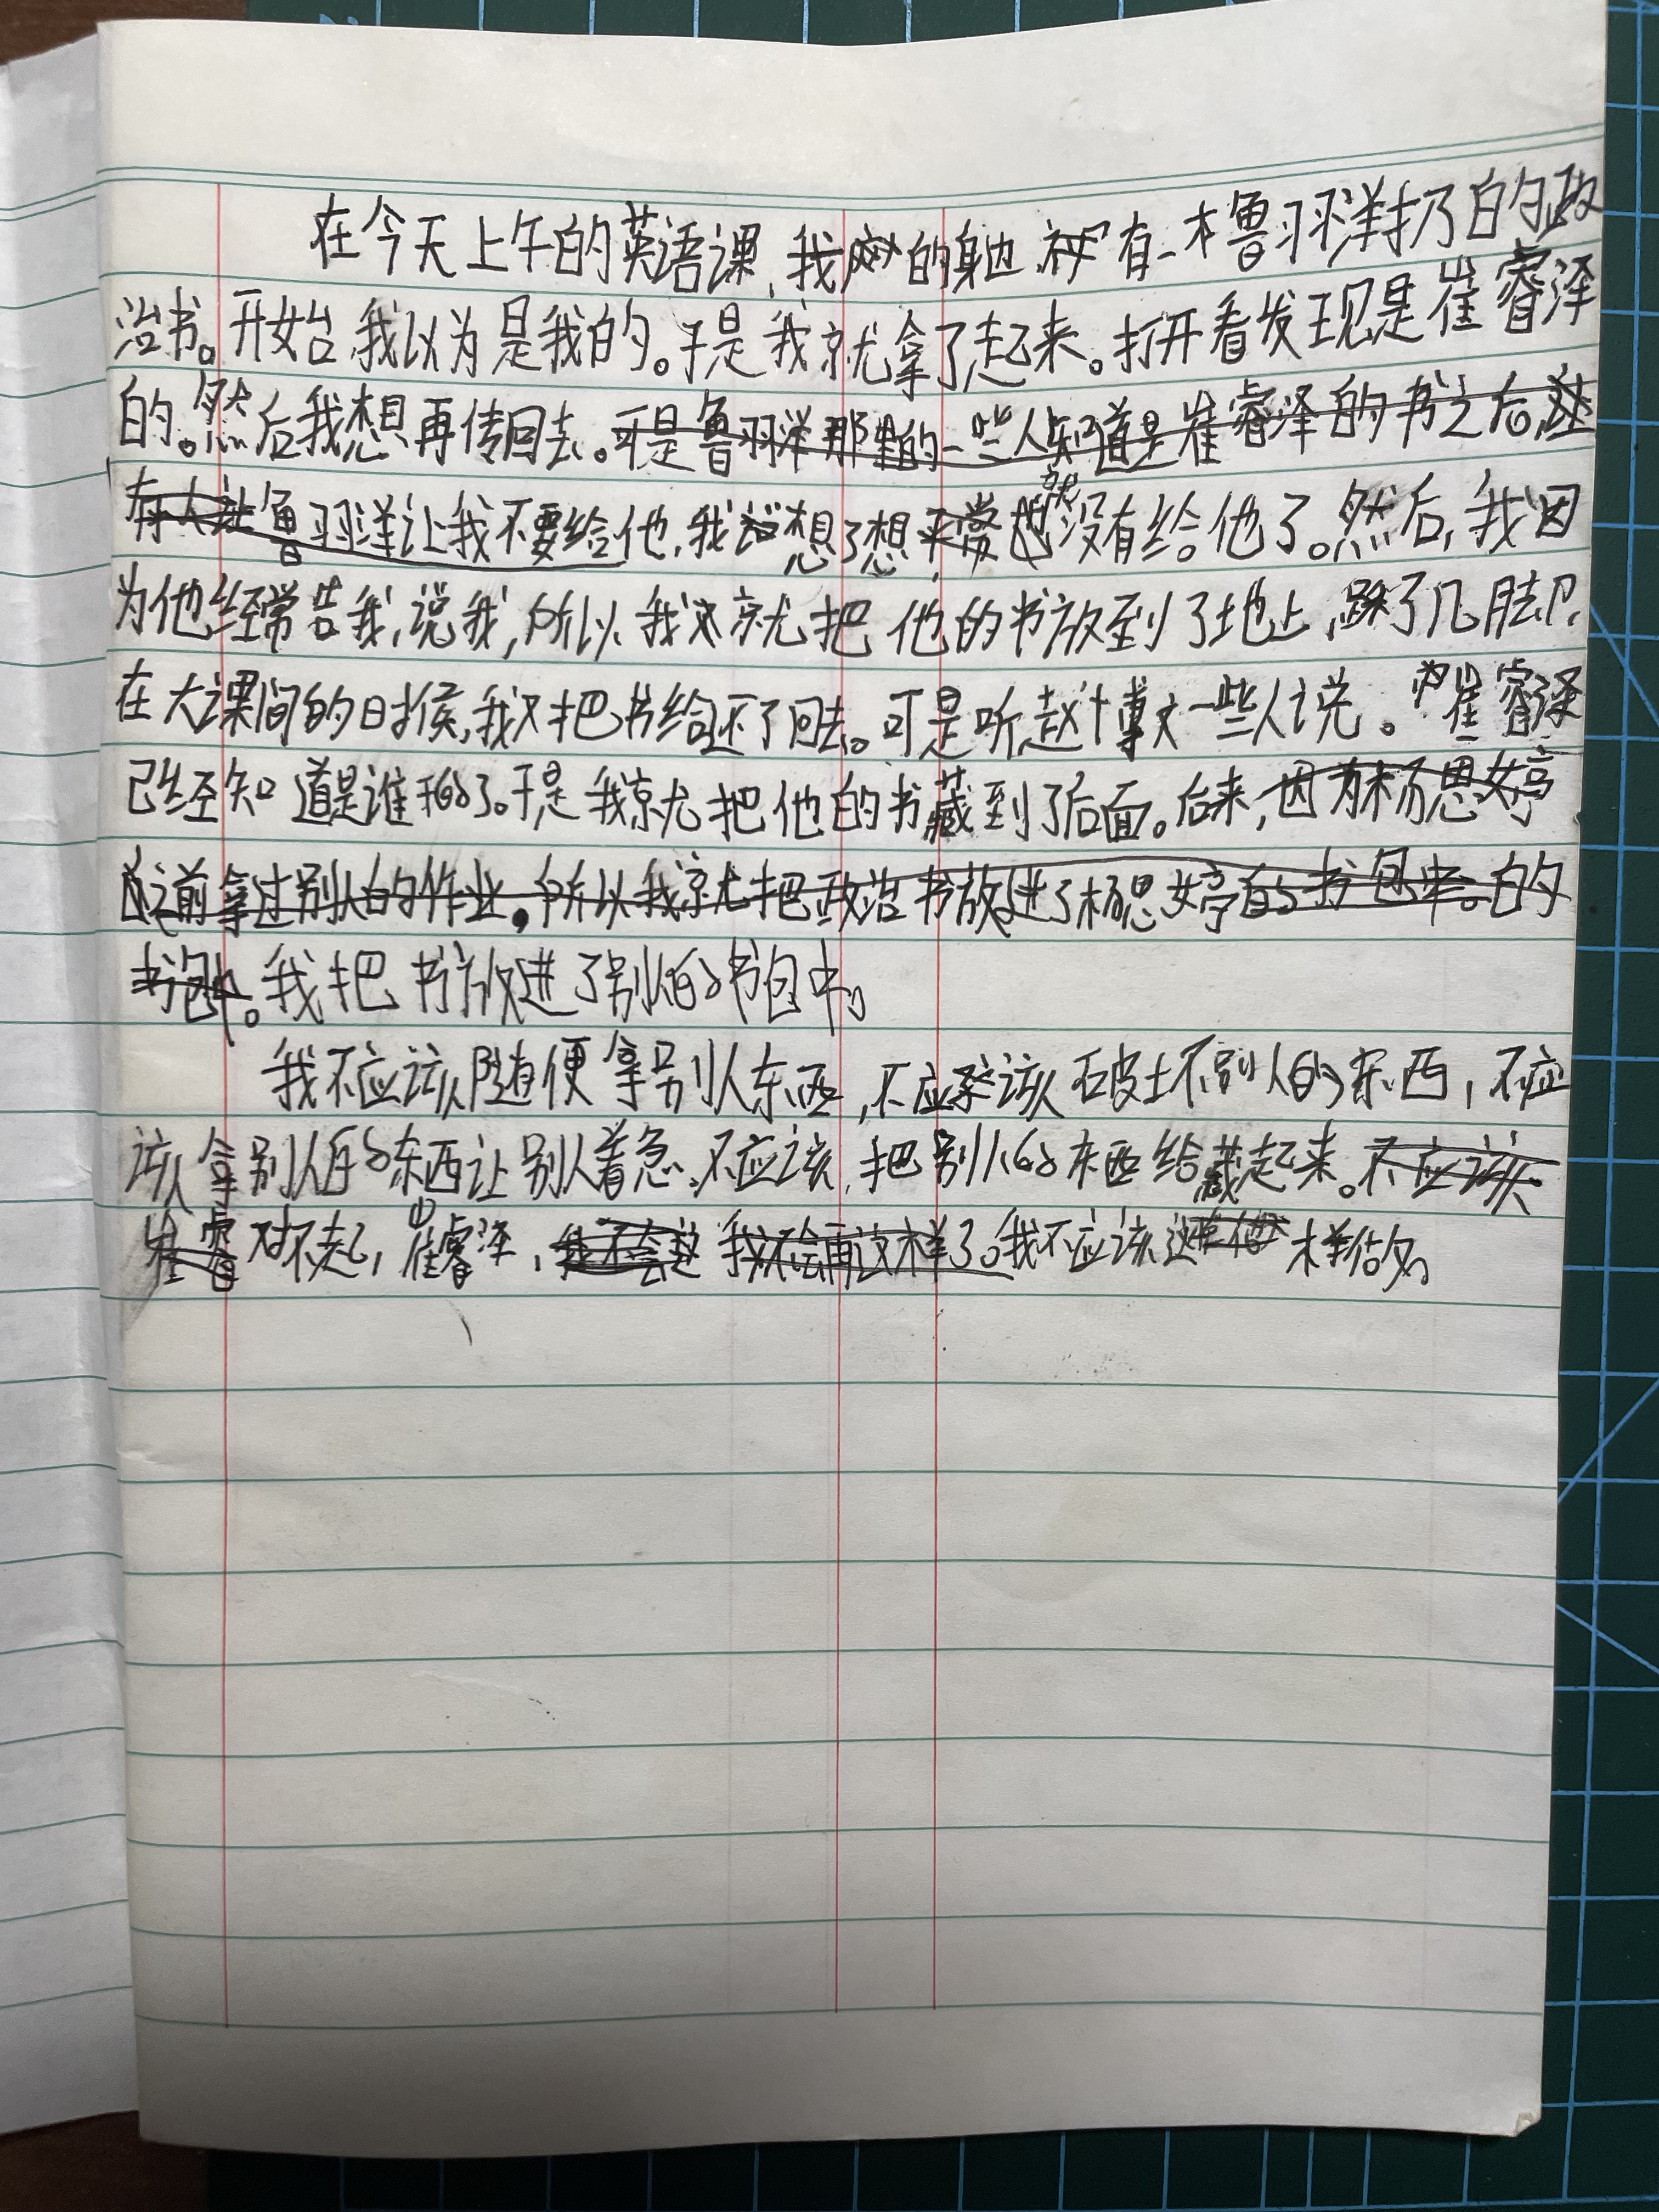 在今天上午的英语课,我的身边有一本鲁羽洋扔的政
治书。开始我以为是我的。于是我就拿了起来。打开看发现是崔睿泽
的。然后我想再传回去。可是鲁羽洋那里的一些人知道是崔睿泽的书之后,
有人让鲁羽洋让我不要给他,我想了想平常就没有给他了。然后,我因
为他经常告我,说我,所以我就把他的书放到了地上,跺了几脚,
在大课间的时候,我又把书给还了回去。可是听赵博文一些人说。崔睿泽
已经知道是谁的了。于是我就把他的书藏到了后面。后来,因为杨思婷
之前拿过别人的作业,所以我就把政治书放进了杨思婷的书包中。的
书包中。我把书放进了别人的书包中。
我不应该随便拿别人东西,不应该破坏别人的东西,不应
该拿别人的东西让别人着急,不应该,把别人的东西给藏起来。不应该
崔睿对不起,崔睿泽,我不会这我不会再这样了。我不应该这样做。